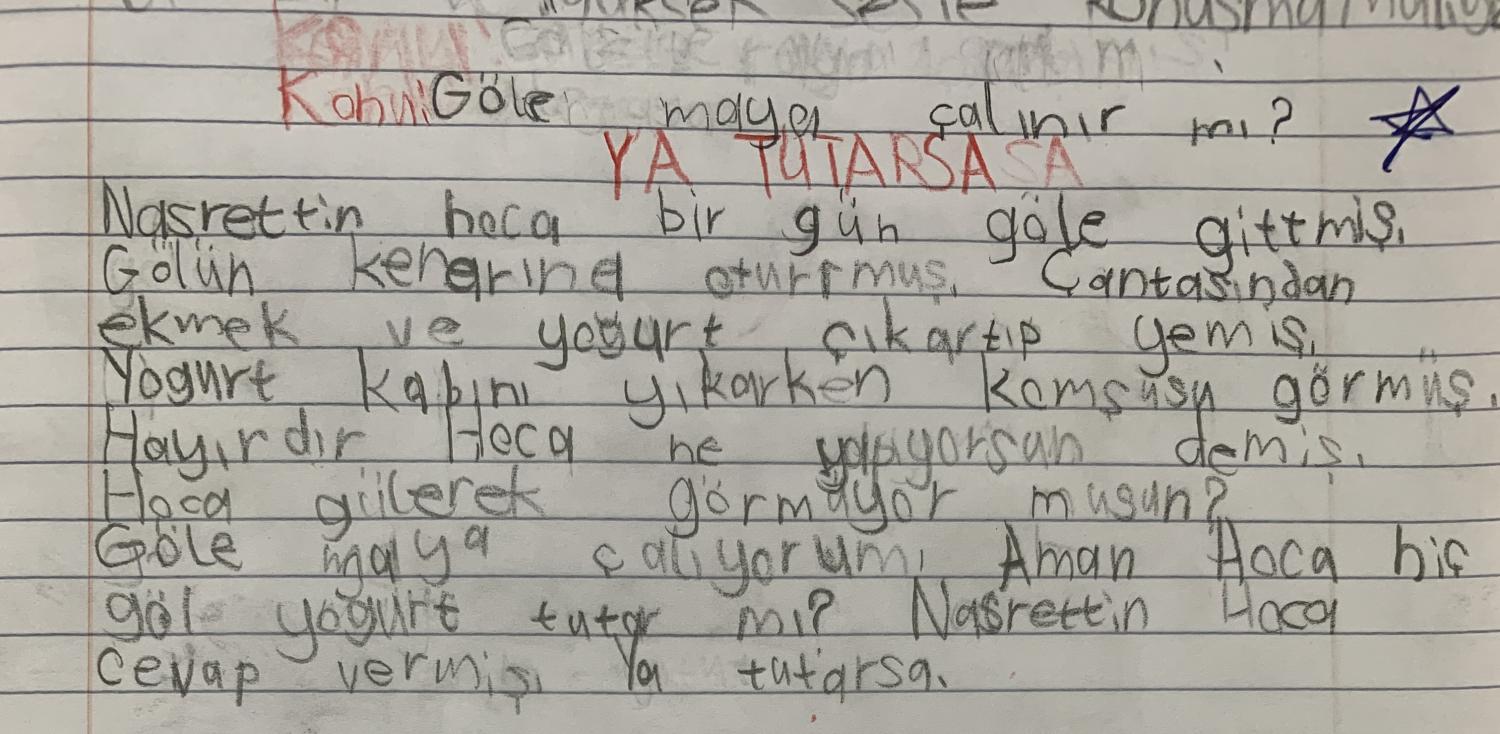 Konu: Göle maya çalınır mı?
YA TUTARSA
Nasrettin hoca bir gün göle gittmiş.
Gölün kenarına oturrmuş. Çantasından
ekmek ve yoğurt çıkartıp yemiş.
Yogurt kabını yıkarken komşusu görmüş.
Hayırdır Hoca ne yapıyorsun demiş.
Hoca gülerek görmüyor musun?
Göle maya çalıyorum. Aman Hoca hiç
göl yoğurt tutar mı? Nasrettin Hoca
cevap vermiş. Ya tutarsa.